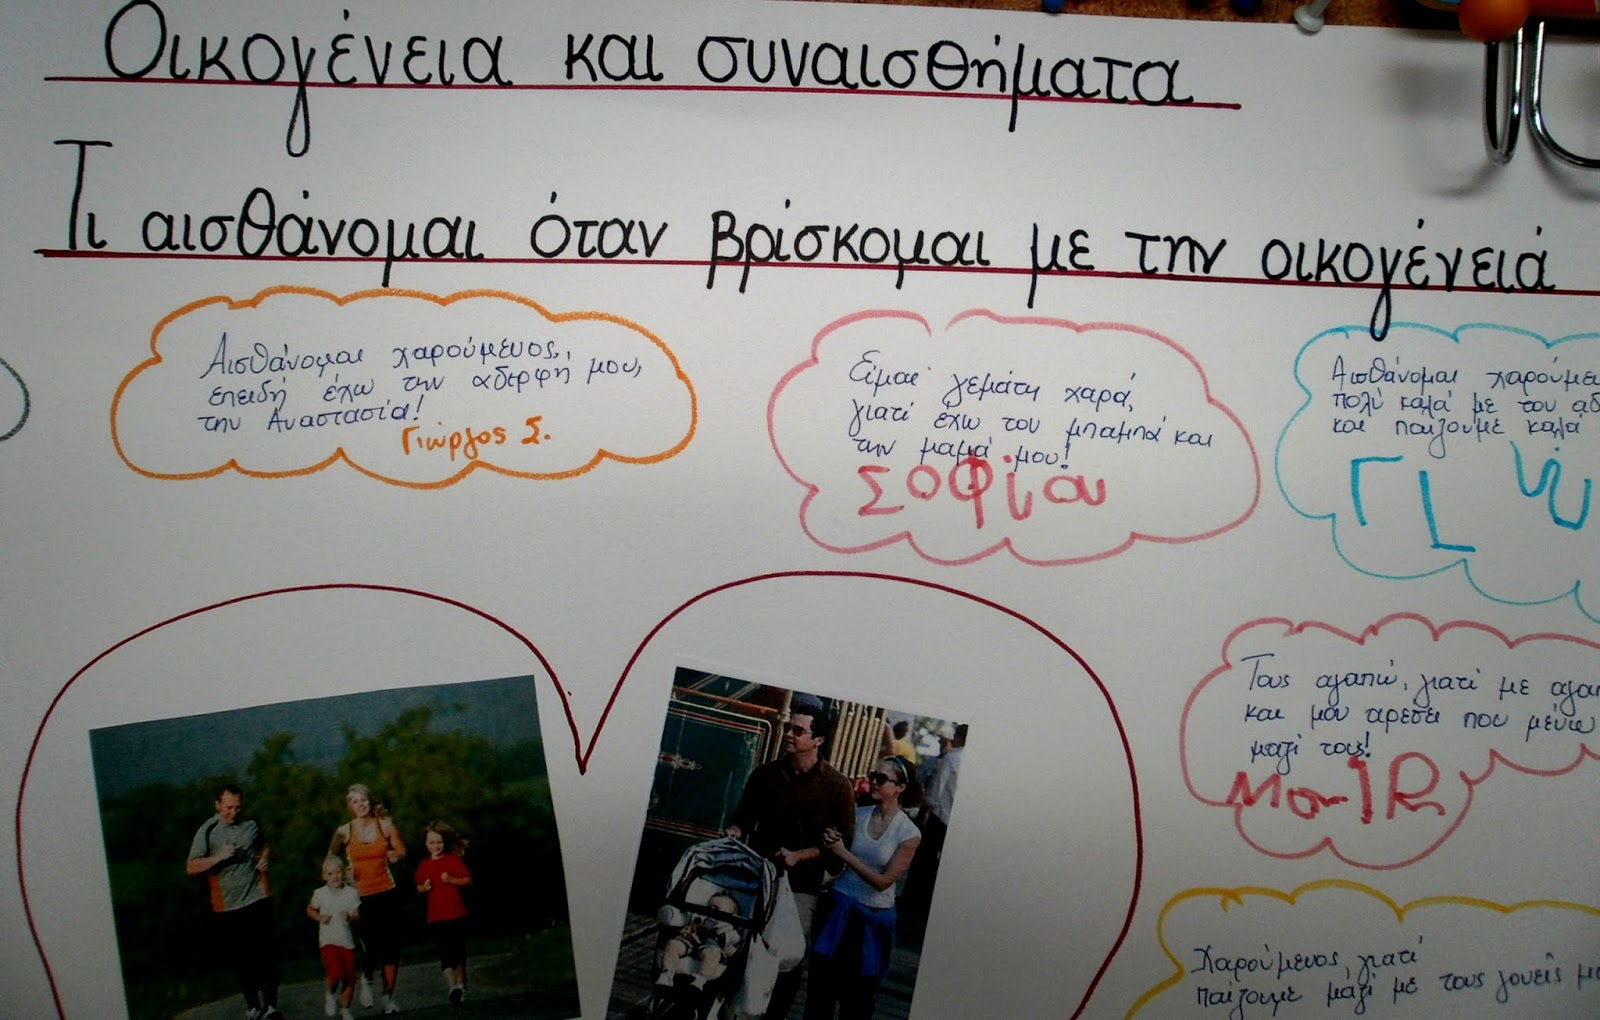 Οικογένεια και συναισθήματα
Τι αισθάνομαι όταν βρίσκομαι με την οικογένειά
Αισθάνομαι χαρούμενος,
επειδή έχω την αδερφή μου,
την Αναστασία!
Γιώργος Σ.
Είμαι γεμάτη χαρά,
γιατί έχω τον μπαμπά και
την μαμά μου!
Σοφία
Αισθάνομαι
πολύ καλά με τον
και παίζουμε καλά
Τους αγαπώ, γιατί με
και μου αρέσει που μένω
μαζί τους!
Χαρούμενος, γιατί
παίζουμε μαζί με τους γονείς